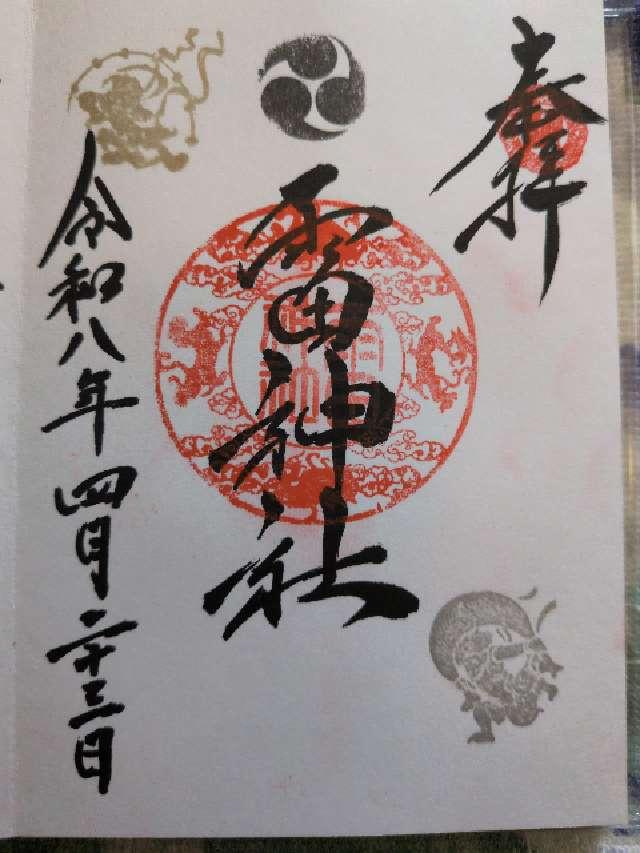 奉拝
雷神社
令和八年四月二十三日